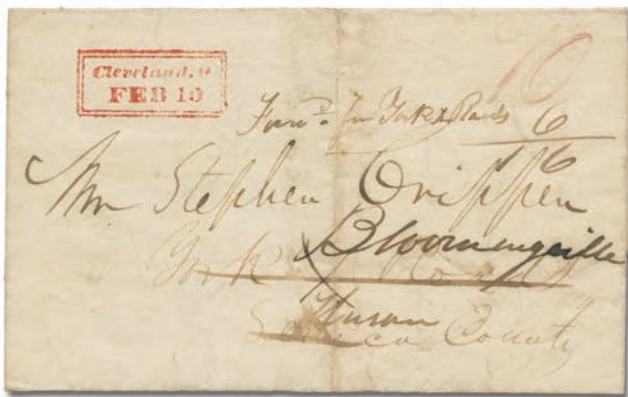 Cleveland. O
FEB 19
10
Forwd. fm York X Roads 6
16
Mr Stephen Crippen
Bloomingville
York X Roads
Huron
Seneca County